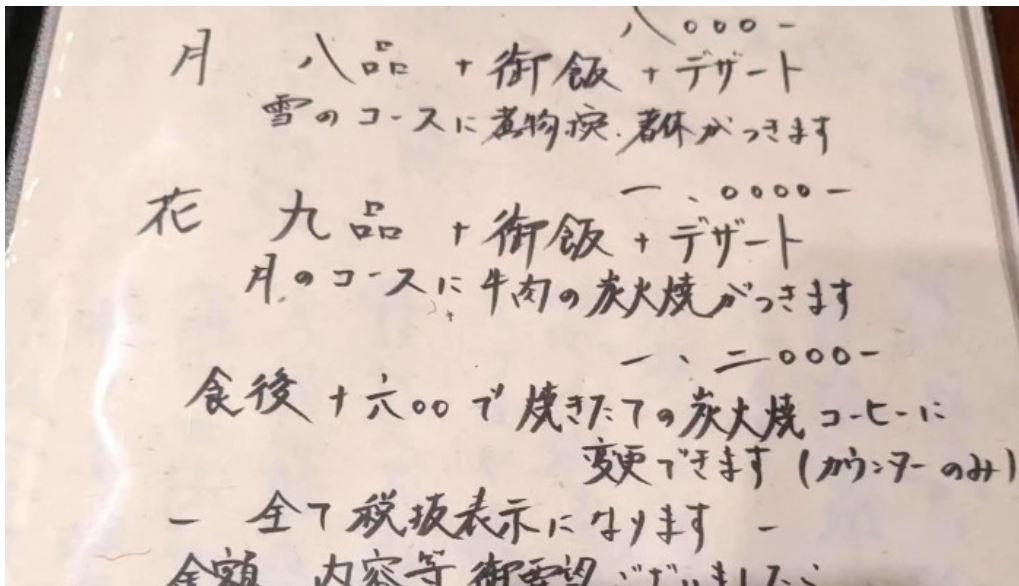 八〇〇〇-
月 八品 + 御飯 + デザート
雪のコースに煮物椀、 がつきます
一、〇〇〇〇-
花 九品 + 御飯 + デザート
月のコースに牛肉の炭火焼がつきます
一、二〇〇〇-
食後 +六〇〇で焼きたての炭火焼コーヒーに
変更できます(カウンターのみ)
- 全て税抜表示になります -
金額 内容等 御要望ございましたら